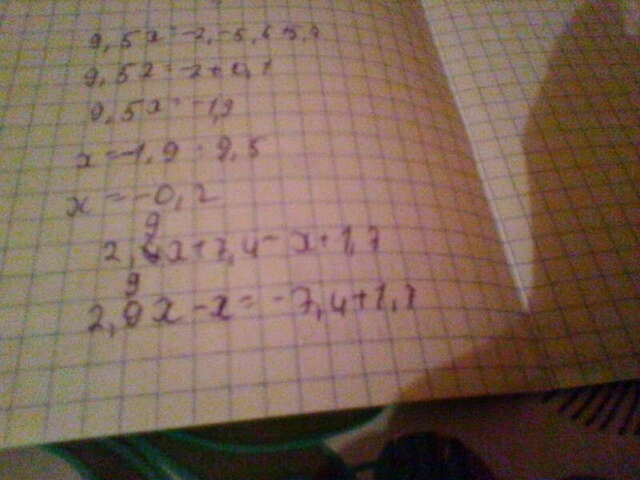 9,5x=-2,-5,6+5,7
9,5x=-2+0,1
9,5x=-1,9
x=-1,9:9,5
x=-0,2
2,9x+7,4=x+1,7
2,9x-x=-7,4+1,7